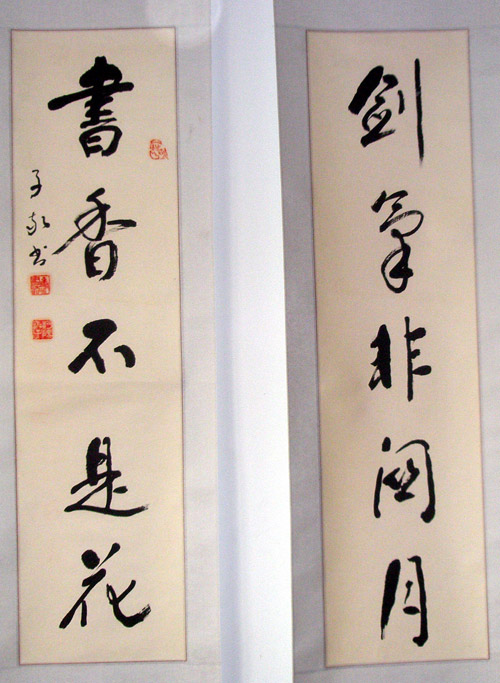 劍氣非關月
書香不是花
子
书